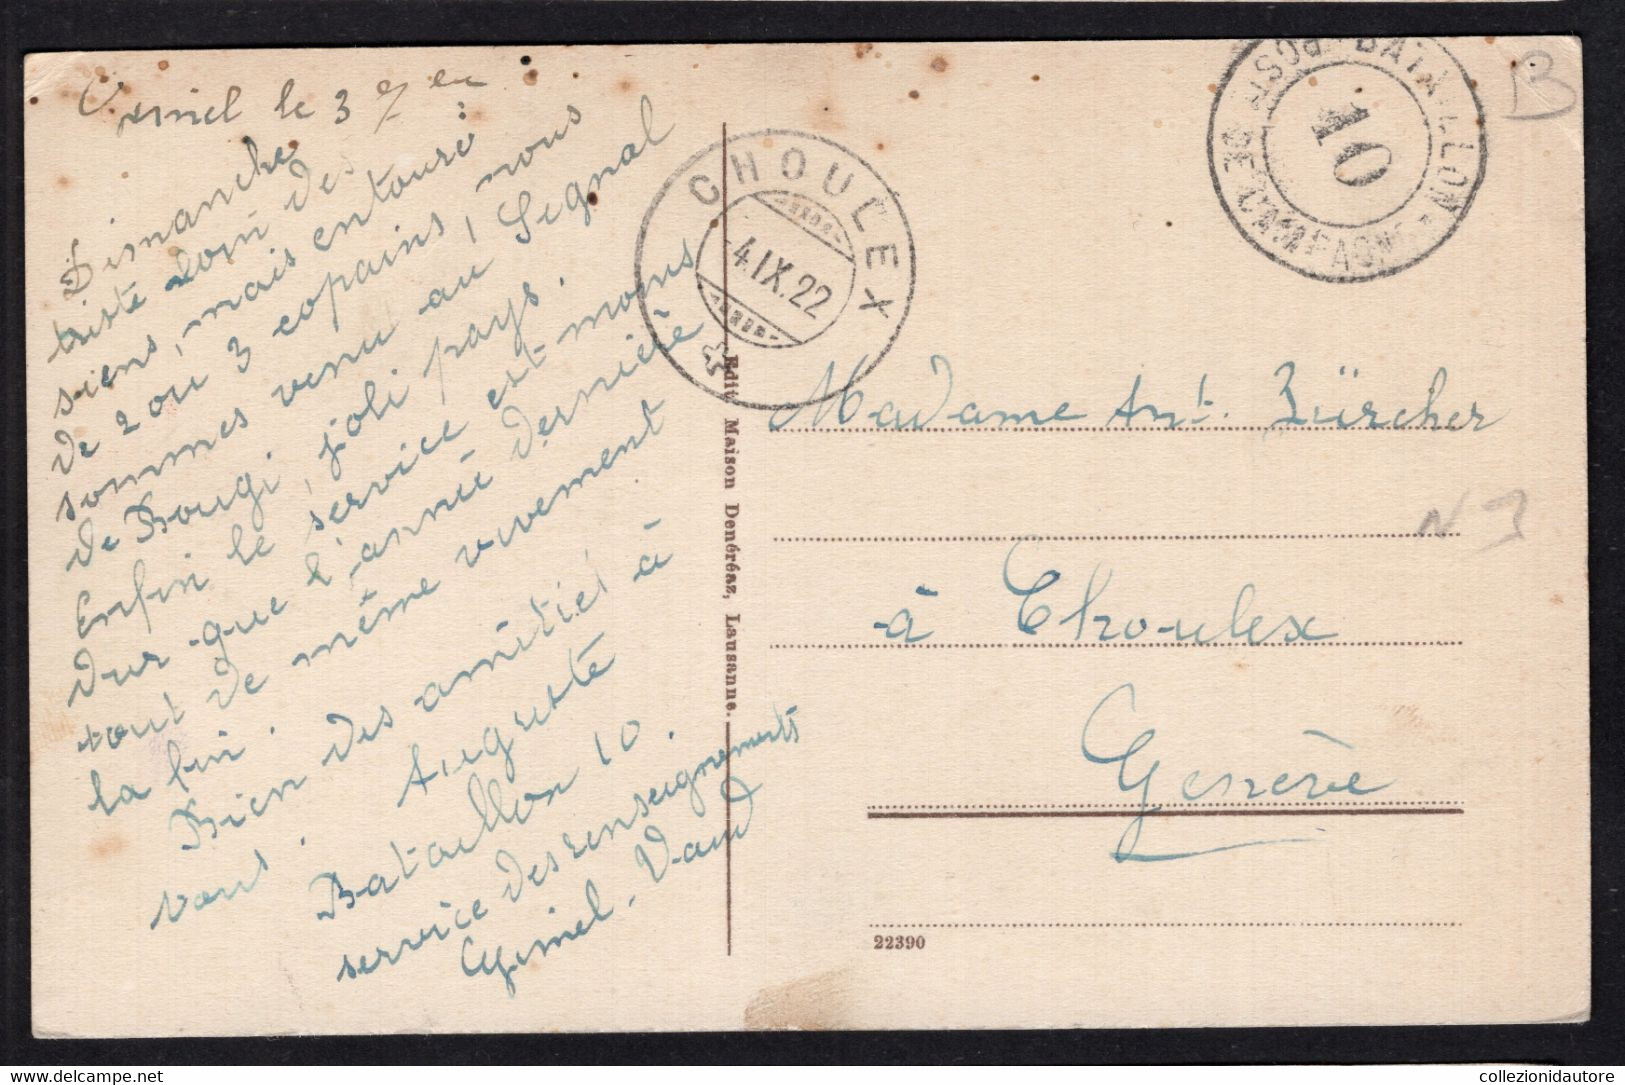 Gimel le 3 7 er
Dimanche
triste loin des
siens, mais entouré
de 2 ou 3 copains, nous
sommes venu au Signal
de Bougi, joli pays.
Enfin le service est moins
dur que l'année dernière
tout de même vivement
la fin.
Bien des amitiés à
vous. Auguste
Bataillon 10.
service des renseignements
Gimel. Vaud
CHOULEX
4.IX.22
Edit. Maison Denéréaz, Lausanne.
BATAILLON
10
POSTE DE CAMPAGNE
B
Madame Ant. Zürcher
N 3
à Choulex
Genève
22390
delcampe.net
collezionidautore